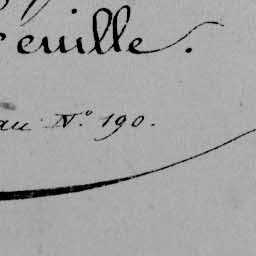 euille.
au N.º 190.